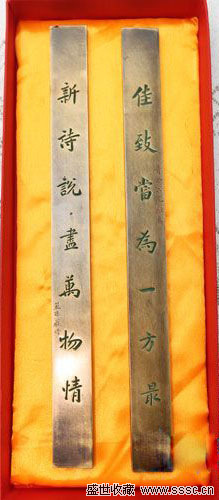 佳致當為一方最
新詩說盡萬物情
盛世收藏
www.sssc.cn